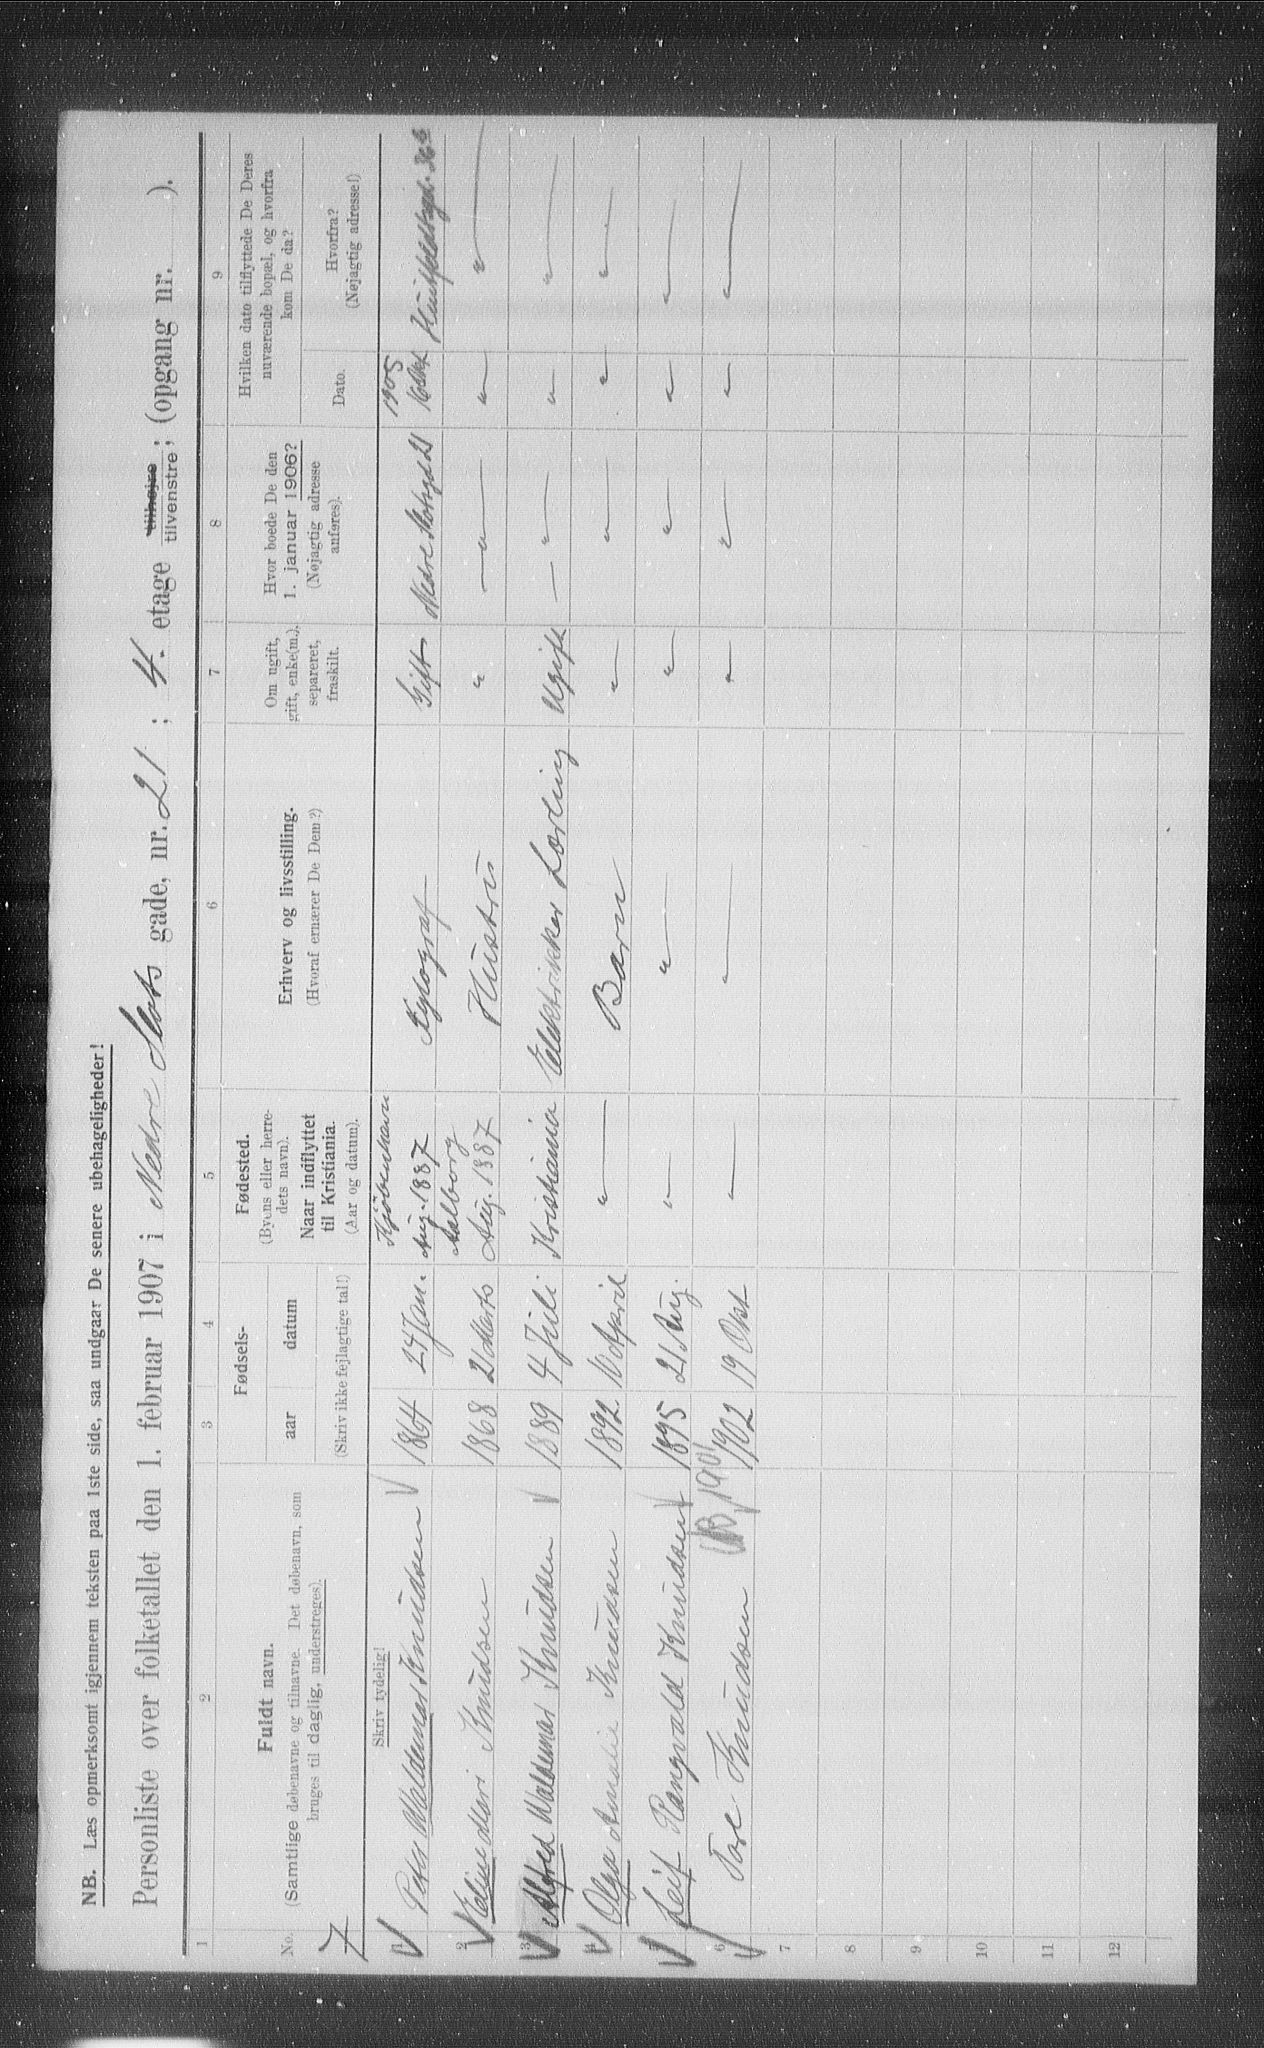 NB. Læs opmerksomt igjennem teksten paa 1ste side, saa undgaar De senere ubehageligheder!
Personliste over folketallet den 1. februar 1907 i Nedre Slots gade, nr. 21 ; 4. etage tilhøjre tilvenstre; (opgang nr. ).
1 2 3 4 5 6 7 8 9
No. Fuldt navn. (Samtlige døbenavne og tilnavne. Det døbenavn, som bruges til daglig, understreges).
Fødsels- aar datum (Skriv ikke fejlagtige tal!)
Fødested. (Byens eller herredets navn). Naar indflyttet til Kristiania. (Aar og datum).
Erhverv og livsstilling. (Hvoraf ernærer De Dem?)
Om ugift, gift, enke(m.), separeret, fraskilt.
Hvor boede De den 1. januar 1906? (Nøjagtig adresse anføres).
Hvilken dato tilflyttede De Deres nuværende bopæl, og hvorfra kom De da?
Dato. Hvorfra? (Nøjagtig adresse!)
7 Skriv tydelig!
1 Peter Waldemar Knudsen 1864 24 Jan. Kjöbenhavn Aug. 1887 Xylograf Gift Nedre Slotsgd 21 1905
2 Eline Mari Knudsen 1868 2 Marts Aalborg Aug. 1887 Hustru " — " — " — " —
3 Alfred Waldemar Knudsen 1889 4 Juli Kristiania Elektrikker Lærling Ugift — " — " — " —
4 Olga Amalie Knudsen 1892 10 April " — Barn " — " — " " —
5 Leif Rangvald Knudsen 1895 21 Aug. " — " — " — " — " — " —
6 Tore Knudsen 1902 19 Okt " — " — " — " — " — " —
7
8
9
10
11
12